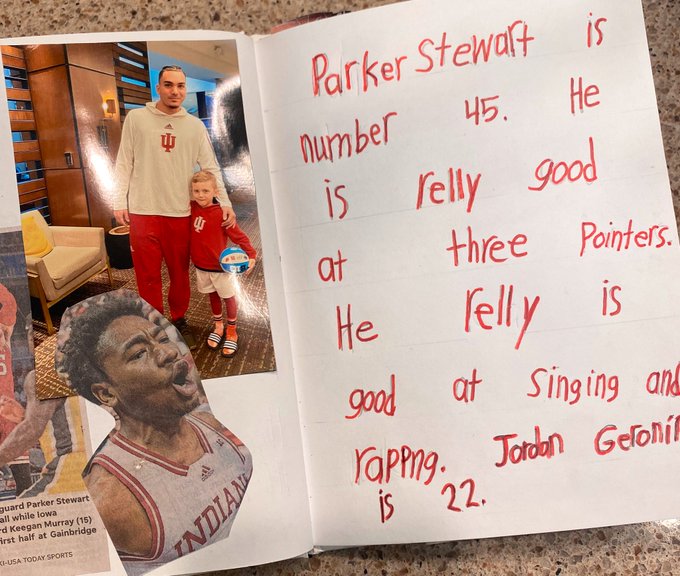 Parker Stewart is
number 45. He
is relly good
at three Pointers.
He relly is
good at Singing and
rappng. Jordan
is 22.
IU
IU
INDIAN
guard Parker Stewart
all while Iowa
rd Keegan Murray (15)
first half at Gainbridge
KI-USA TODAY SPORTS